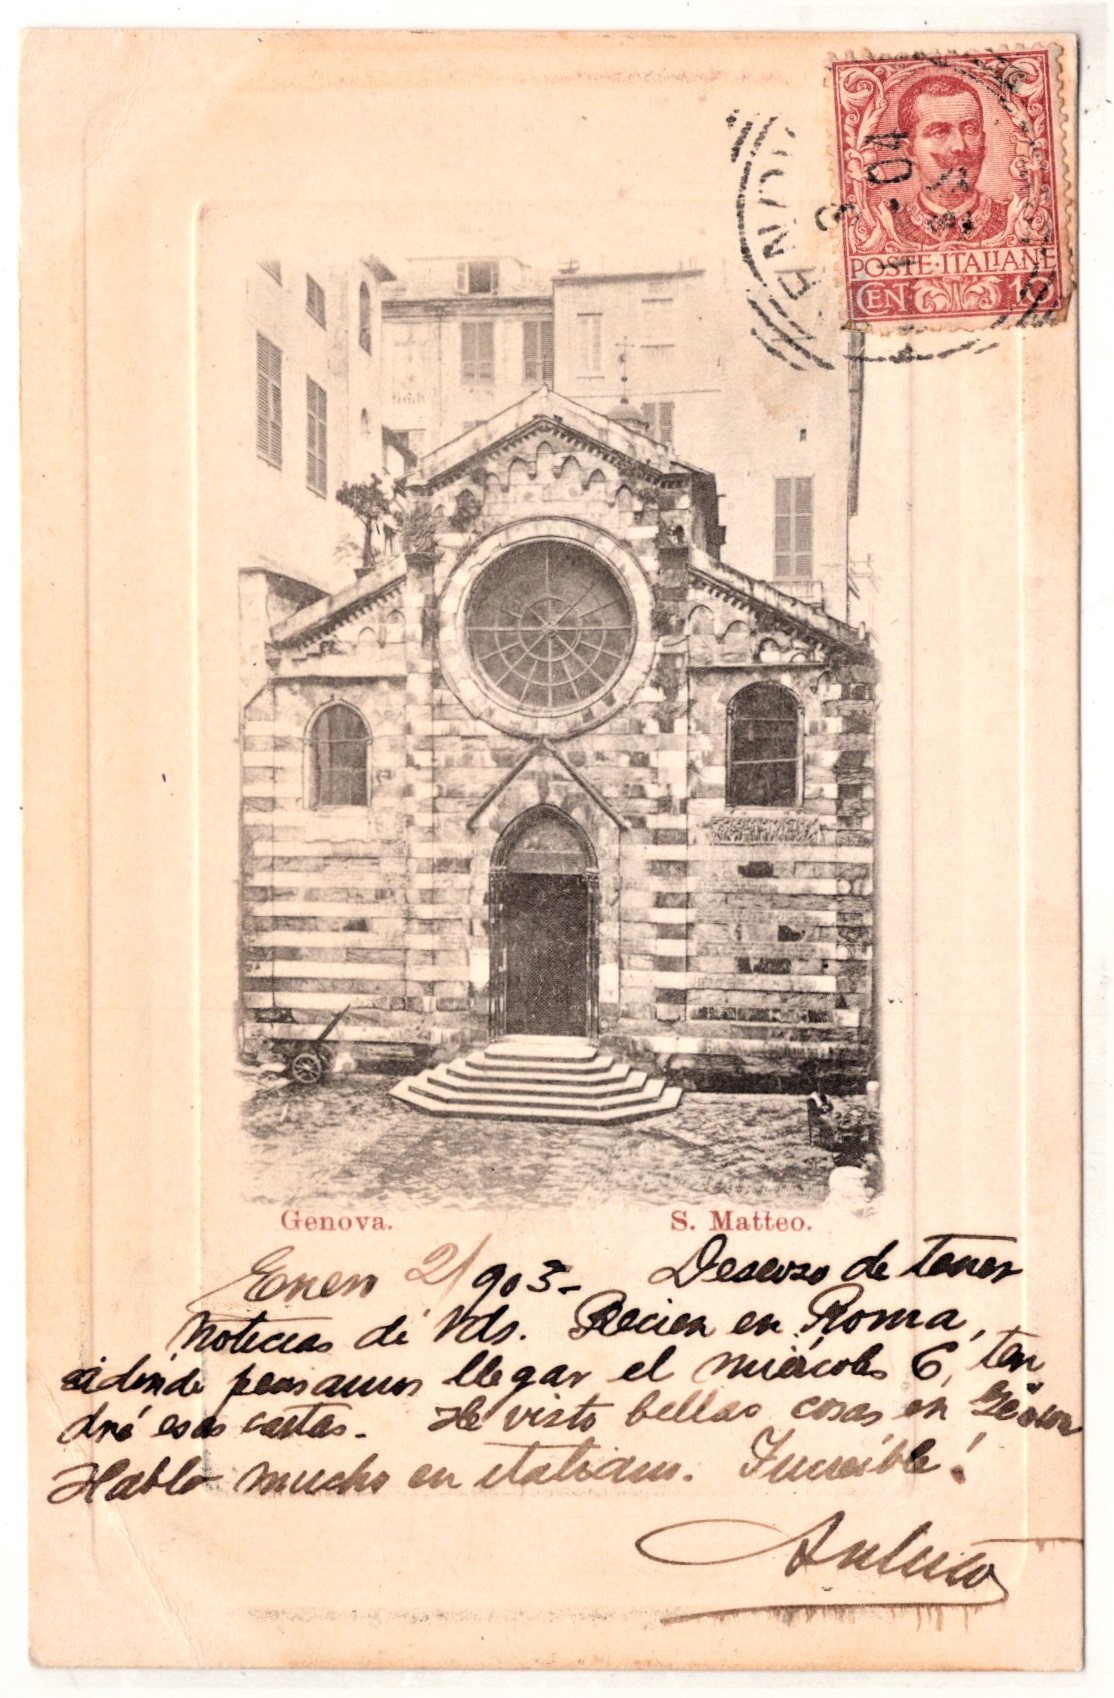 3
04
POSTE·ITALIANE
CENT 10
Genova. S. Matteo.
Enero 2/903- Deseoso de tener
noticias de Vds. Recien en Roma,
a donde pensamos llegar el miércoles 6, ten
dré esas cartas. He visto bellas cosas en
Hablo mucho en italiano. Increíble!